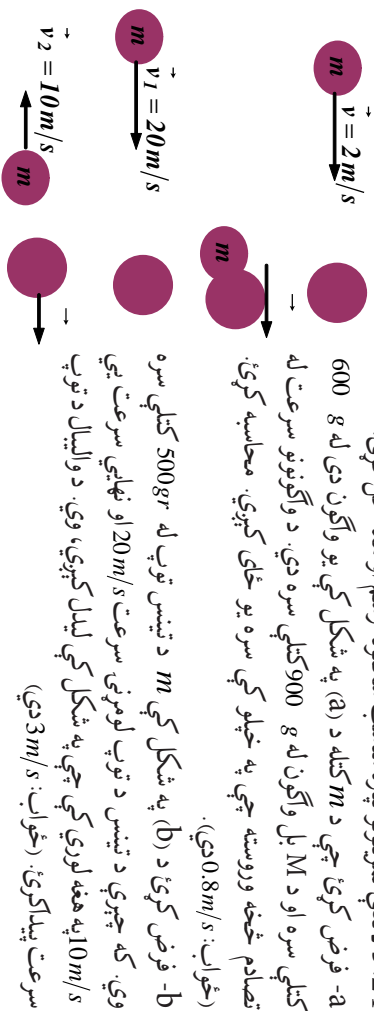 a- فرض کړئ چې د m کتله د (a) په شکل کې يو واگون دی له 600 g
کتلې سره او د M بل واگون له 900 g کتلې سره دي. د واگونونو سرعت له
تصادم څخه وروسته چې په خپلو کې سره يو ځای کيږي. محاسبه کړئ.
(ځواب: 0.8m/s دي).
b- فرض کړئ د (b) په شکل کې m د تينس توپ له 500gr کتلې سره
وي. که چېرې د تينس د توپ لومړنی سرعت 20m/s او نهايي سرعت يې
10m/s په هغه لوري کې چې په شکل کې ليدل کيږي، وي. د واليبال د توپ
سرعت پيداکړئ. (ځواب: 3m/s دي)
m
v = 2m/s
m
m
v1 = 20m/s
v2 = 10m/s
m